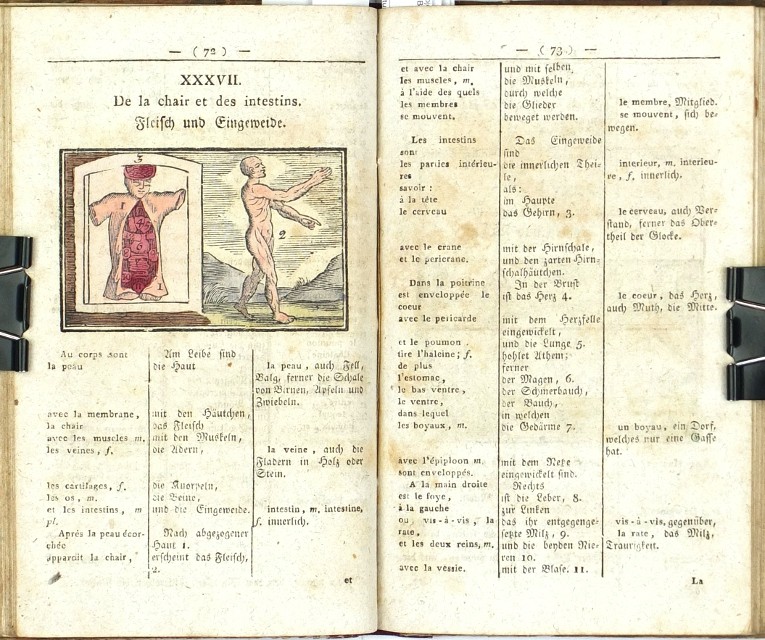 — ( 72 ) —
XXXVII.
De la chair et des intestins.
Fleisch und Eingeweide.
3
1
2
1
Au corps sont
la peau
avec la membrane,
la chair
avec les muscles m.
les veines, f.
les cartilages, f.
les os, m.
et les intestins, m
pl.
Après la peau écor-
chée
apparoit la chair,
Am Leibe sind
die Haut
mit den Häutchen,
das Fleisch
mit den Muskeln,
die Adern,
die Knorpeln,
die Beine,
und die Eingeweide.
Nach abgezogener
Haut 1.
erscheint das Fleisch,
2.
la peau, auch Fell,
Balg, ferner die Schale
von Birnen, Äpfeln und
Zwiebeln.
la veine, auch die
Fladern in Holz oder
Stein.
intestin, m. intestine,
f. innerlich.
et
— ( 73 ) —
et avec la chair
les muscles, m.
à l'aide des quels
les membres
se mouvent.
Les intestins
sont
les parties intérieu-
res
savoir :
à la tête
le cerveau
avec le crane
et le pericrane.
Dans la poitrine
est enveloppée le
coeur
avec le pericarde
et le poumon
tire l'haleine; f.
de plus
l'estomac,
le bas ventre,
le ventre,
dans lequel
les boyaux, m.
avec l'épiploon m.
sont enveloppés.
A la main droite
est le foye,
à la gauche
ou vis-à-vis, la
rate,
et les deux reins, m.
avec la vessie.
und mit selben
die Muskeln,
durch welche
die Glieder
beweget werden.
Das Eingeweide
sind
die innerlichen Thei-
le,
als:
im Haupte
das Gehirn, 3.
mit der Hirnschale,
und den zarten Hirn-
schalhäutchen.
In der Brust
ist das Herz 4.
mit dem Herzfelle
eingewickelt,
und die Lunge 5.
hohlet Athem;
ferner
der Magen, 6.
der Schmerbauch,
der Bauch,
in welchen
die Gedärme 7.
mit dem Netze
eingewickelt sind.
Rechts
ist die Leber, 8.
zur Linken
das ihr entgegenge-
setzte Milz, 9.
und die beyden Nie-
ren 10.
mit der Blase. 11.
le membre, Mitglied.
se mouvent, sich be-
wegen.
interieur, m. interieu-
re, f. innerlich.
le cerveau, auch Ver-
stand, ferner das Ober-
theil der Glocke.
le coeur, das Herz,
auch Muth, die Mitte.
un boyau, ein Dorf,
welches nur eine Gasse
hat.
vis-à-vis, gegenüber,
la rate, das Milz,
Traurigkeit.
La